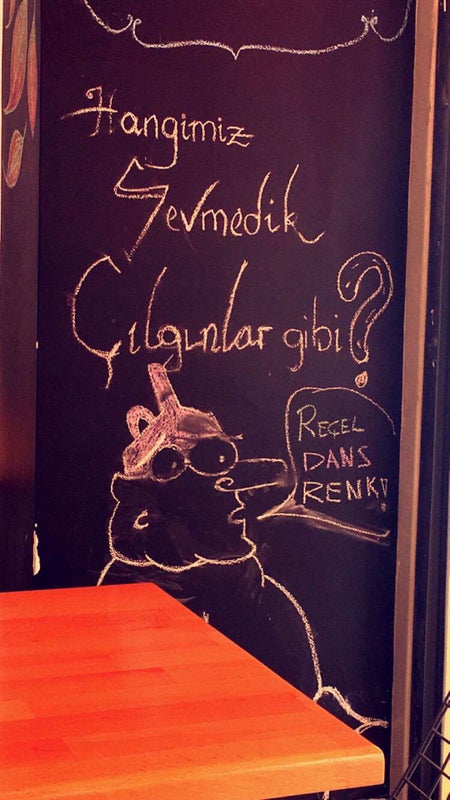 Hangimiz
Sevmedik
Çılgınlar gibi?
REÇEL
DANS
RENK!